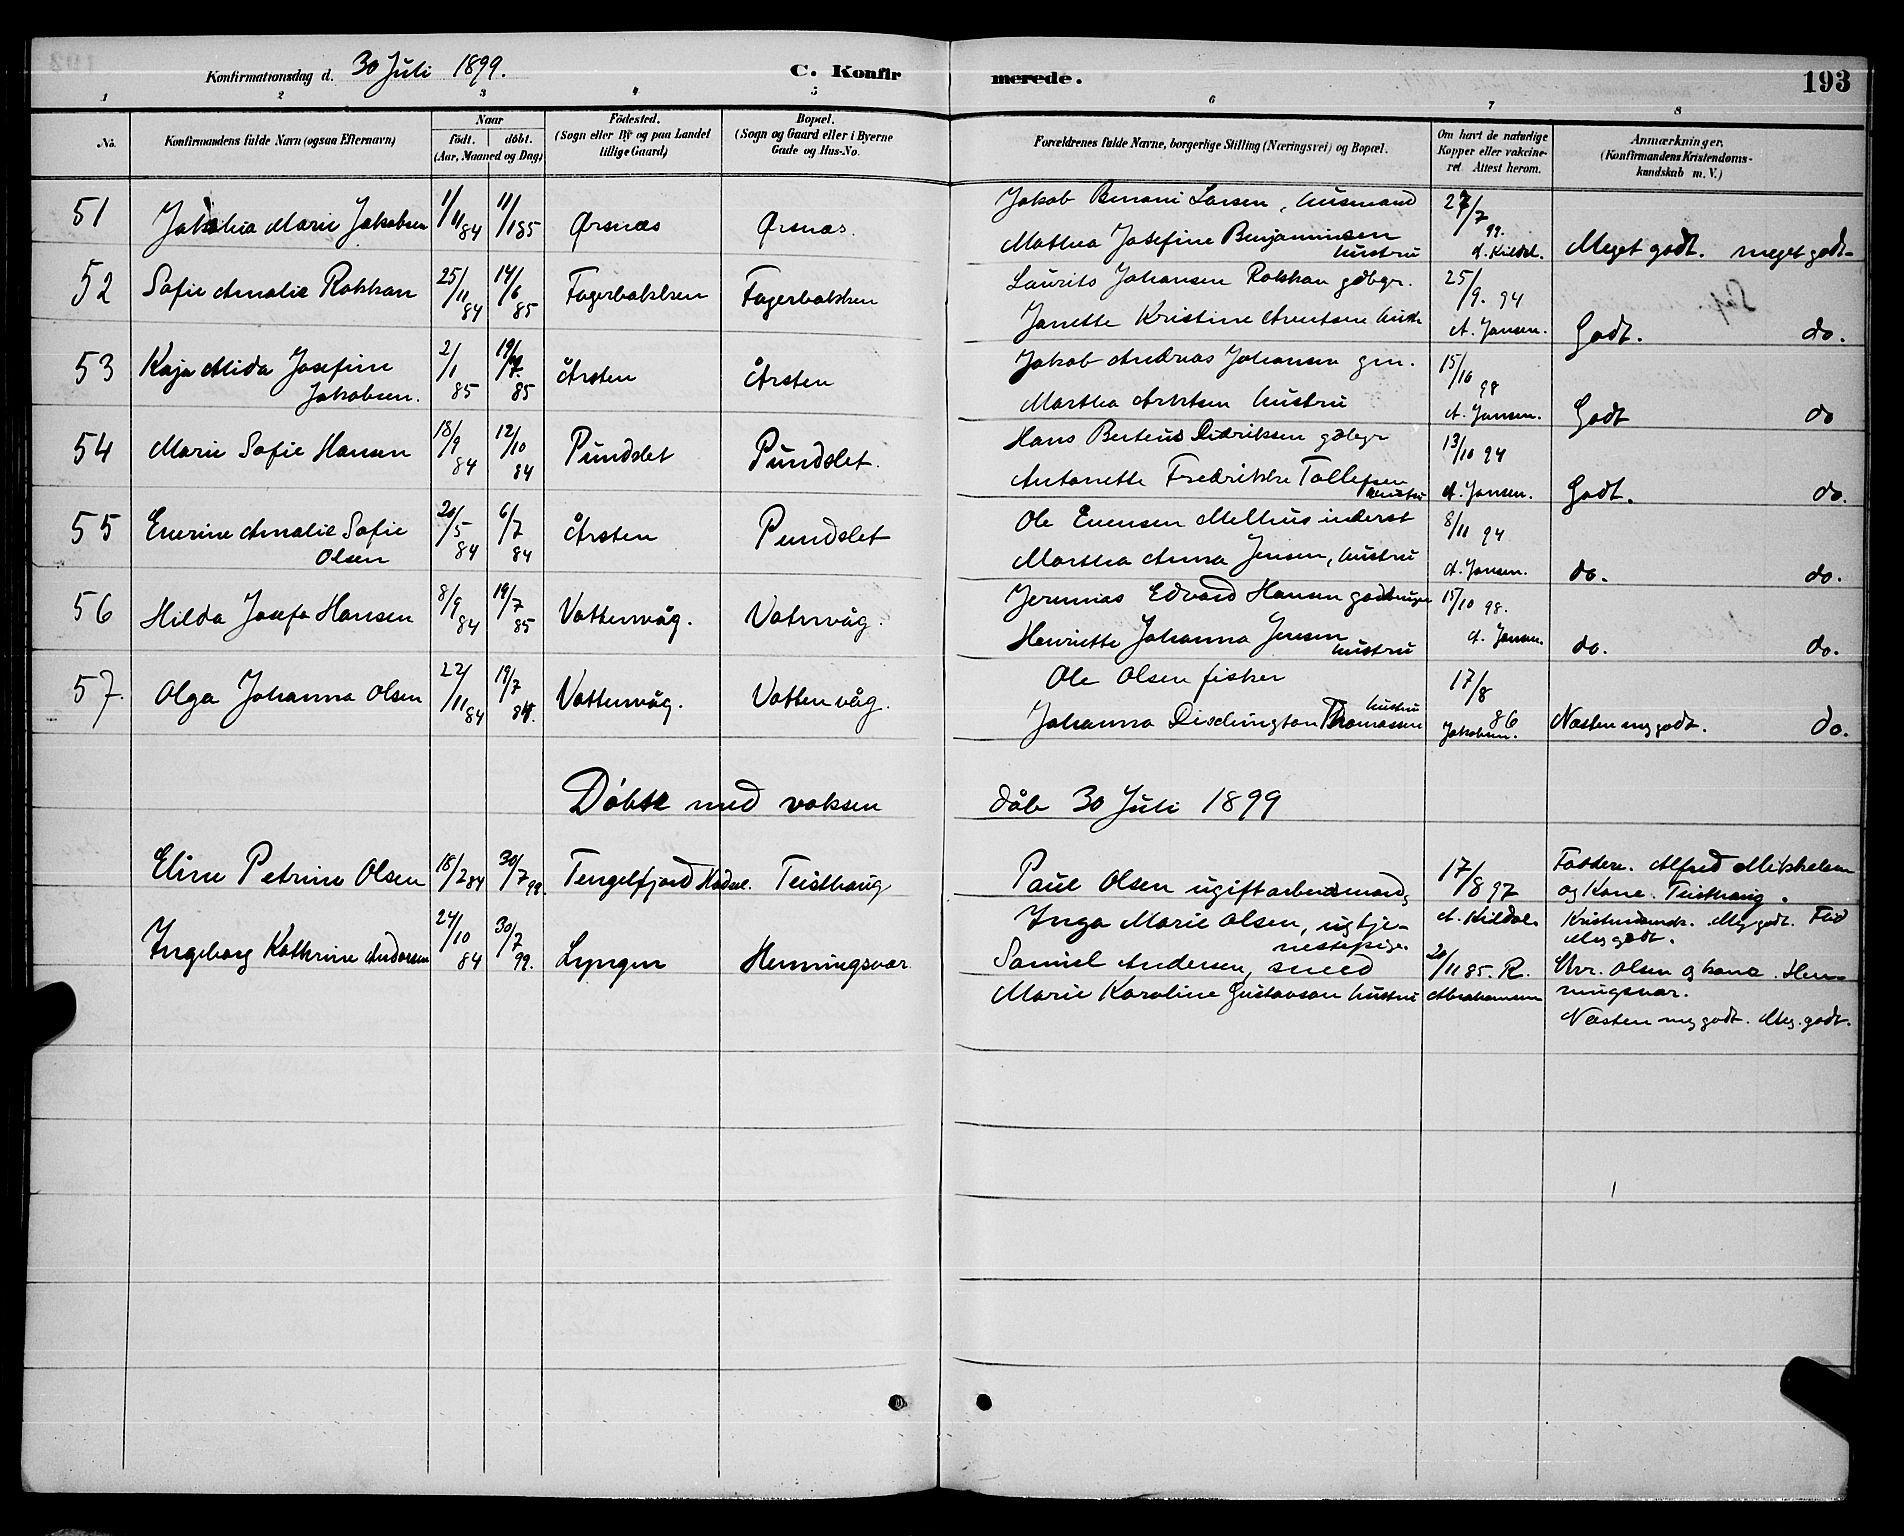 Konfirmationsdag d. 30 Juli 1899.
C. Konfirmerede.
193
1 2 3 4 5 6 7 8
No.
Konfirmandens fulde Navn (ogsaa Efternavn)
Naar
födt. döbt.
(Aar, Maaned og Dag)
Födested.
(Sogn eller By og paa Landet
tillige Gaard)
Bopæl.
(Sogn og Gaard eller i Byerne
Gade og Hus-No.
Forældrenes fulde Navne, borgerlige Stilling (Næringsvei) og Bopæl.
Om havt de naturlige
Kopper eller vakcine-
ret. Attest herom.
Anmærkninger.
(Konfirmandens Kristendoms-
kundskab m. V.)
51 Marie Jakobsen 1/11 84 11/1 85 Ørsnæs Ørsnæs.
Jakob Benoni Larsen, husmand
Mathea Josefine Benjaminsen
hustru
27/7 99.
A. Kildal.
Meget godt. meget godt
52 Sofie Amalie Rokkan 25/11 84 14/6 85 Fagerbakken Fagerbakken
Laurits Johansen Rokkan gdbgr.
Janette Kristine Arntsen hustr
25/9. 94
A. Jansen.
Godt. do.
53 Kaja Alida Josefine
Jakobsen.
2/1 85 19/7 85 Årsten Årsten
Jakob Andreas Johansen gm.
Martha Arntsen hustru
15/10 98
A. Jansen.
Godt do
54 Marie Sofie Hansen 18/9 84 12/10 84 Pundslet Pundslet.
Hans Berteus Didriksen gdbgr
Antonette Fredrikke Tollefsen
hustru
13/10 94
A. Jansen.
Godt. do.
55 Enerine Amalie Sofie
Olsen
20/5 84 6/7 84 Årsten Pundslet
Ole Evensen Melhus inderst
Martha Anna Jensen, hustru
8/11 94
A. Jansen.
do. do.
56 Hilda Josefa Hansen 8/9 84 19/7 85 Vattenvåg. Vatnvåg.
Jeremias Edvard Hansen
Henriette Johanna Jensen
hustru
15/10 98.
A. Jansen.
do. do.
57. Olga Johanna Olsen 22/11 84 19/7 Vattenvåg. Vattenvåg.
Ole Olsen fisker
hustru
Johanna Dischington Thomassen
17/8 86
Jakobsen.
Næsten meg godt. do.
Döbte med voksen dåb 30 Juli 1899
Eline Petrine Olsen 18/2 84 30/7 99. Tengelfjord Hadsel. Teisthaug
Paul Olsen ugift arbeidsmand,
Inga Marie Olsen, ug tje-
nestepige.
17/8 97
A. Kildal.
Faddere. Alfred Mikkelsen
og Kone. Teisthaug.
Kristendomsk. Meg godt. Flid
Meg godt.
Ingeborg Kathrine Andersen 24/10 84 30/7 99. Lyngen Henningsvær
Samuel Andersen, smed
Marie Karoline Gustavson hustru
20/11 85. R.
Abrahamsen
Chr. Olsen og kone. Hen-
ningsvær.
Næsten meg godt. Meg. godt.